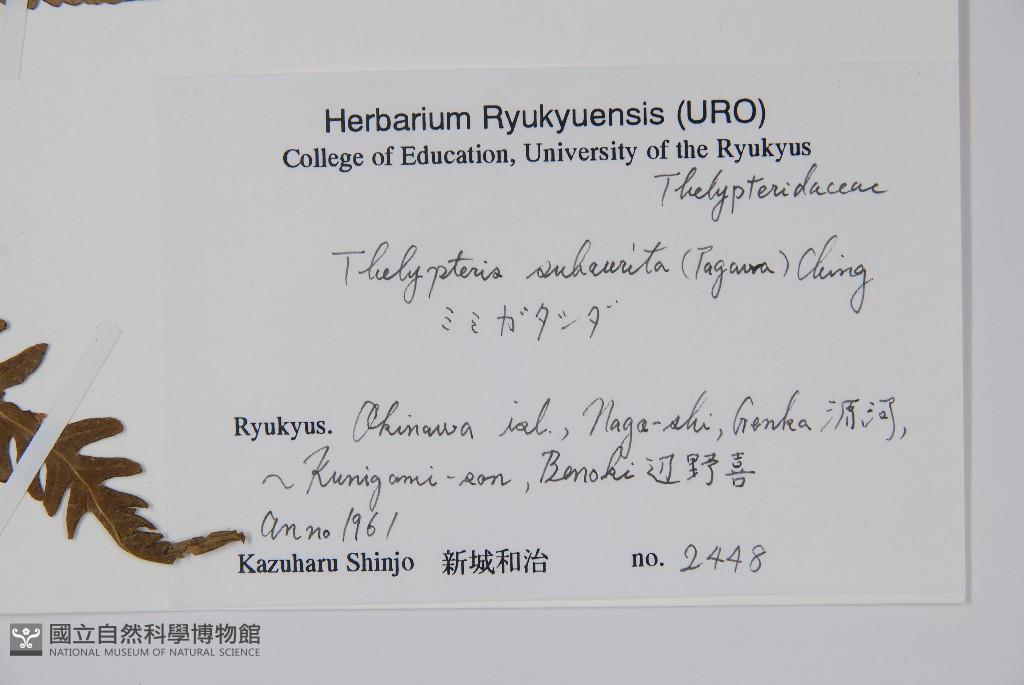 Herbarium Ryukyuensis (URO)
College of Education, University of the Ryukyus
Thelypteridaceae
Thelypteris subaurita (Tagawa) Ching
ミミガタシダ
Ryukyus. Okinawa isl., Nago-shi, Genka 源河,
~ Kunigami-son, Benoki 辺野喜
anno 1961
Kazuharu Shinjo 新城和治 no. 2448
國立自然科學博物館
NATIONAL MUSEUM OF NATURAL SCIENCE